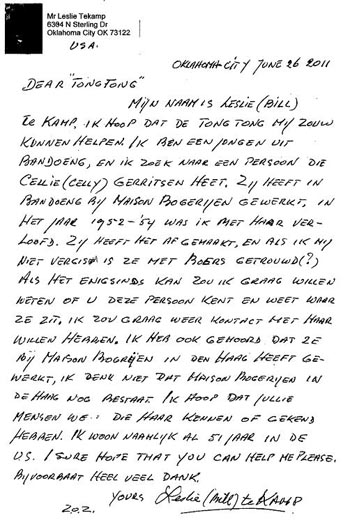 Mr Leslie Tekamp
6394 N Sterling Dr
Oklahoma City OK 73122
USA.
OKLAHOMA CITY JUNE 26 2011
DEAR "TONGTONG"
MIJN NAAM IS LESLIE (BILL)
TE KAMP. IK HOOP DAT DE TONG TONG MIJ ZOUW
KUNNEN HELPEN. IK BEN EEN JONGEN UIT
BANDOENG, EN IK ZOEK NAAR EEN PERSOON DIE
CELLIE (CELLY) GERRITSEN HEET. ZIJ HEEFT IN
BANDOENG BIJ MAISON BOGERIJEN GEWERKT, IN
HET JAAR 1952-'54 WAS IK MET HAAR VER-
LOOFD. ZIJ HEEFT HET AFGEMAAKT, EN ALS IK MIJ
NIET VERGIS IS ZE MET BOERS GETROUWD (?)
ALS HET ENIGSINDS KAN ZOU IK GRAAG WILLEN
WETEN OF U DEZE PERSOON KENT EN WEET WAAR
ZE ZIT. IK ZOU GRAAG WEER KONTACT MET HAAR
WILLEN HEBBEN. IK HEB OOK GEHOORD DAT ZE
BIJ MAISON BOGRIJEN IN DEN HAAG HEEFT GE-
WERKT, IK DENK NIET DAT MAISON BOGERIJEN IN
DE HAAG NOG BESTAAT. IK HOOP DAT JULLIE
MENSEN DIE HAAR KENNEN OF GEKEND
HEBBEN. IK WOON NAMLIJK AL 51 JAAR IN DE
U.S. I SURE HOPE THAT YOU CAN HELP ME PLEASE.
BIJ VOORBAAT HEEL VEEL DANK.
YOURS Leslie (Bill) te KAMP